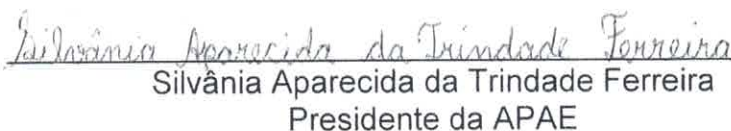 Silvânia Aparecida da Trindade Ferreira
Silvânia Aparecida da Trindade Ferreira
Presidente da APAE